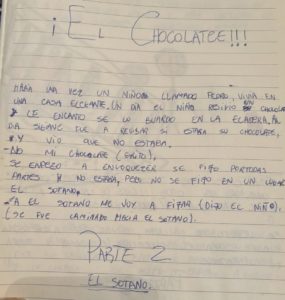 ¡EL CHOCOLATEE!!!
HABIA UNA VEZ UN NIÑO LLAMADO PEDRO, VIVIA EN
UNA CASA ELEGANTE, UN DIA EL NIÑO RESIVIO UN CHOCOLATE
Y LE ENCANTO SE LO GUARDO EN LA ELADERA, AL
DIA SIGIENTE FUE A REVISAR SI ESTABA SU CHOCOLATE,
Y VIO QUE NO ESTABA.
-NO MI CHOCOLATE (GRITO).
SE EMPEZO A ENLOQUEZER SE FIJO POR TODAS
PARTES Y NO ESTABA, PERO NO SE FIJO EN UN LUGAR
EL SOTANO.
-A EL SOTANO ME VOY A FIJAR (DIJO EL NIÑO).
(SE FUE CAMINADO HACIA EL SOTANO).
PARTE 2
EL SOTANO.